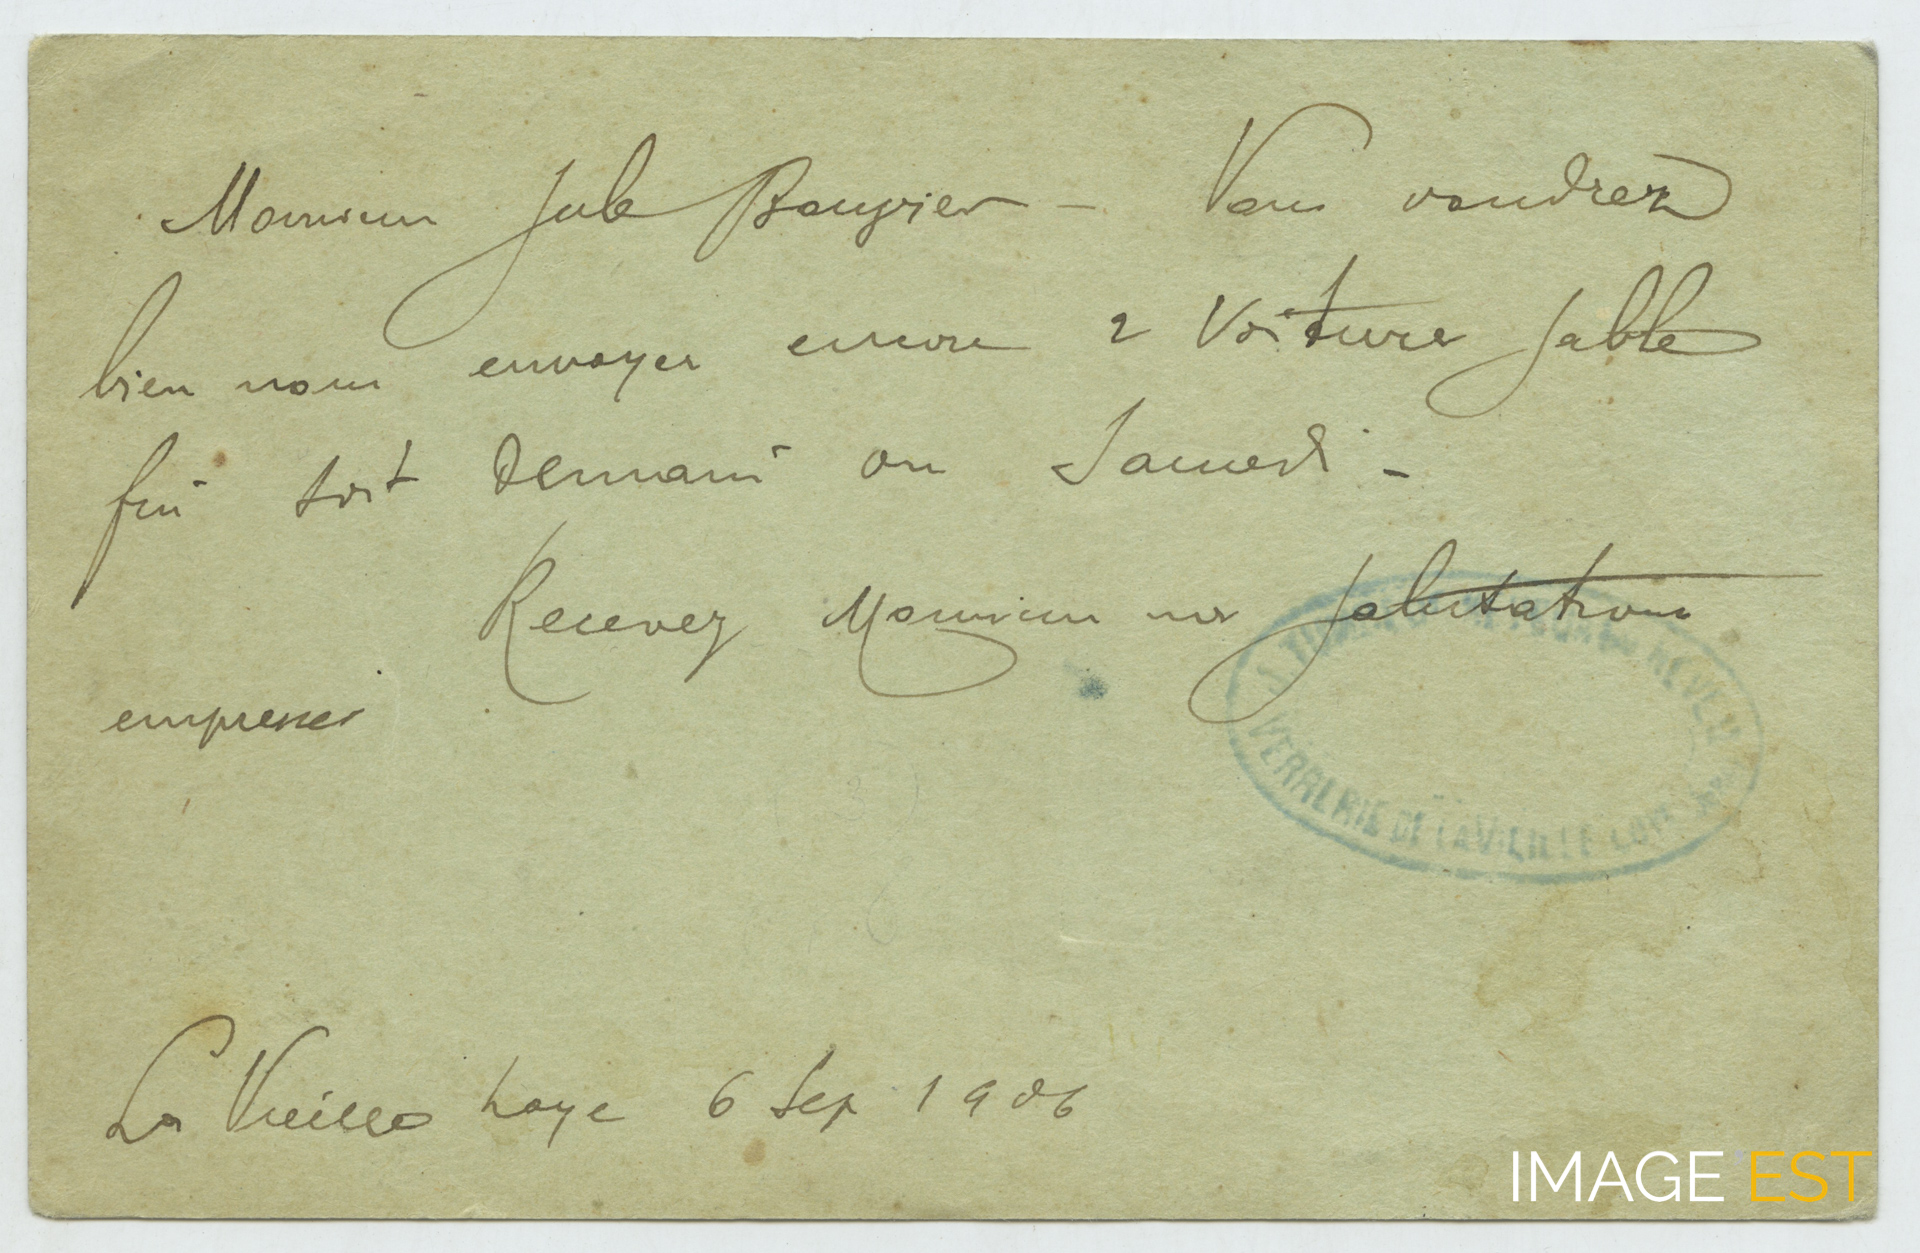 Monsieur Jule Bouyier - Vous voudrez
bien nous envoyer encore 2 Voitures Sable
fin soit Demain ou Samedi -
Recevez Monsieur nos Salutations
empressés
VERRERIE DE LA VIEILLE LOYE
La Vieille Loye 6 Sep 1906
IMAGE'EST